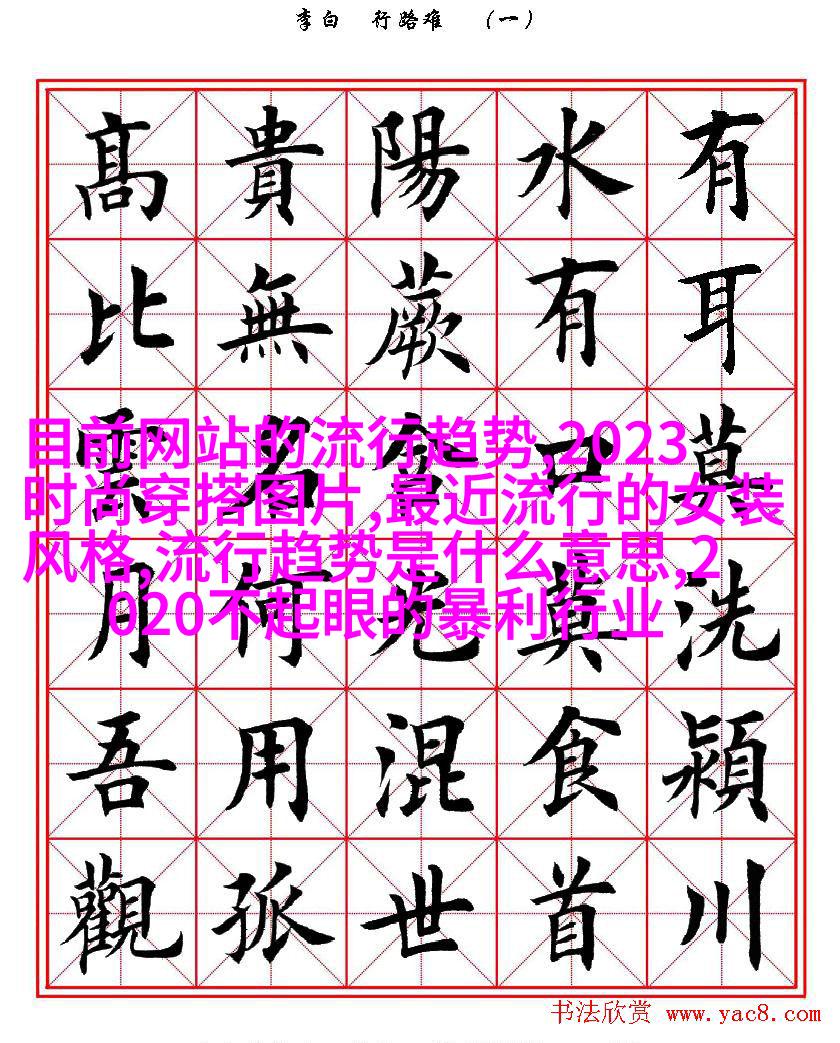 李白 行路难 （一）
有耳莫洗潁川
水有口莫食首
陽蕨含光混世
貴無名何用孤
髙比雲月吾觀
目前网站的流行趋势,2023
时尚穿搭图片,最近流行的女装
风格,流行趋势是什么意思,2
020不起眼的暴利行业
书法欣赏 www.yac8.com